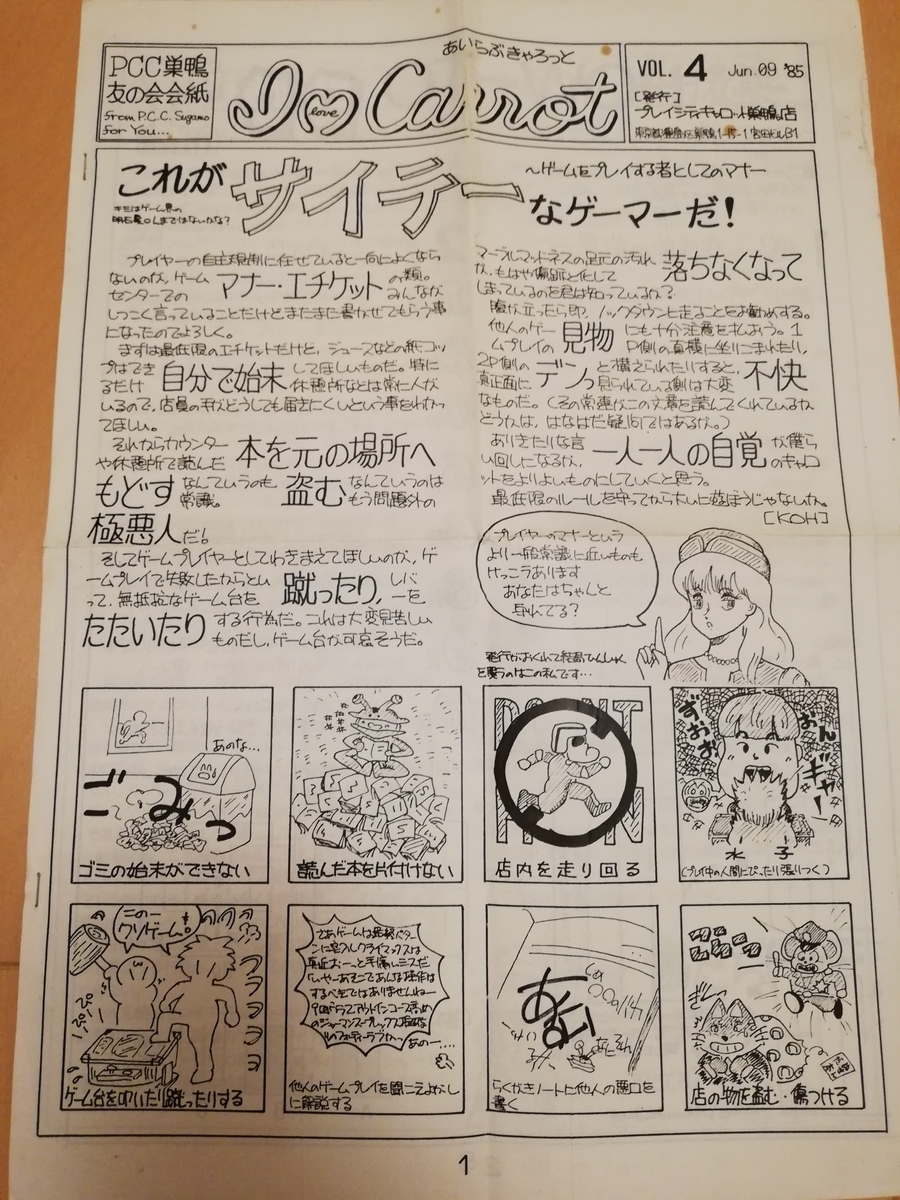 PCC巣鴨
友の会会紙
from P.C.C. Sugamo
for You...
あいらぶきゃろっと
I love Carrot
VOL. 4 Jun.09 '85
[発行]
プレイシティキャロット巣鴨店
東京都豊島区巣鴨 宮田ビルB1
これがサイテーなゲーマーだ!
〜ゲームをプレイする者としてのマナー
キミはゲーム界の
プレイヤーの自主規制に任せていると一向によくなら
ないのが、ゲームセンターでのマナー・エチケットの類。みんなが
しつこく言っていることだけどまたまた書かせてもらう事
になったのでよろしく。
まずは最低限のエチケットだけど、ジュースなどの紙コッ
プはできるだけ自分で始末してほしいものだ。特に休憩所などは常に人が
いるので、店員の手がどうしても届きにくいという事をわかっ
てほしい。
それからカウンターや休憩所で読んだ本を元の場所へ
もどすなんていうのも常識。盗むなんていうのはもう問題外の
極悪人だ!
そしてゲームプレイヤーとしてわきまえてほしいのが、ゲ
ームプレイで失敗したからといって、無抵抗なゲーム台を蹴ったり、レバーを
たたいたりする行為だ。これは大変見苦しいものだし、ゲーム台が可哀そうだ。
マーブルマッドネスの足元の汚れが、もはや傷跡と化して落ちなくなって
しまっているのを君は知っているか?
腹が立ったら即、ノックダウンに走ることをお勧めする。
他人のゲームプレイの見物にも十分注意を払おう。1P側の真横に坐りこまれたり、
2P側の真正面にデンッと構えられたりすると、見られている側は大変不快
なものだ。(くだんの常連がこの文章を読んでくれているか
どうかは、はなはだ疑問ではあるが。)
ありきたりな言い回しになるが、一人一人の自覚が僕らのキャロ
ットをよりよいものにしていくと思う。
最低限のルールを守ってから大いに遊ぼうじゃないか。
[KOH]
プレイヤーのマナーという
より一般常識に近いものも
けっこうあります
あなたはちゃんと
守れてる?
発行がおくれて結局ひんしゅく
を買うのはこの私です…
あのな…
ごみっ
ゴミの始末ができない
読んだ本を片付けない
店内を走り回る
ぎおおお
おんギャー
水子
(プレイ中の人間にぴったり張りつく)
このー
クソゲーム!
ゲーム台を叩いたり蹴ったりする
あのー…
他人のゲームプレイを聞こえよがし
に解説する
らくがきノートに他人の悪口を
書く
店の物を盗む・傷つける
1